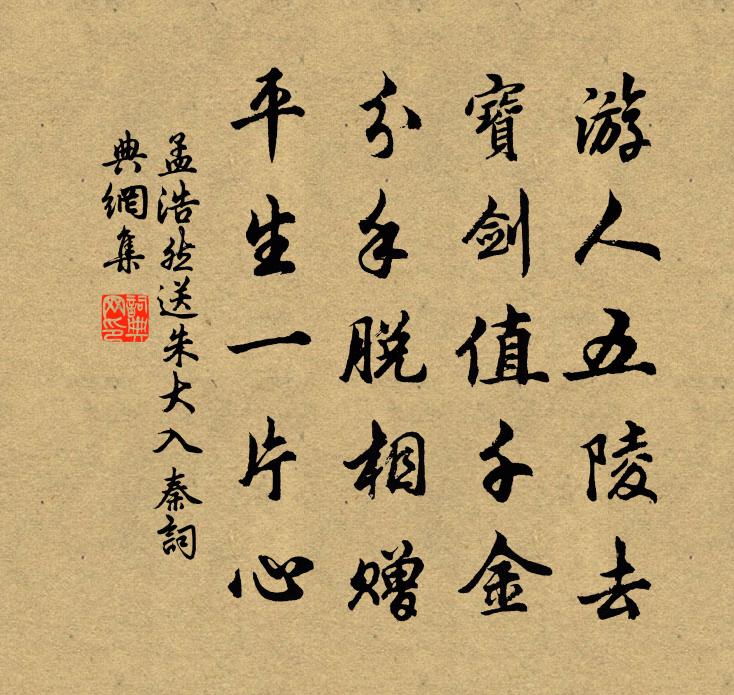 游人五陵去
寶劍值千金
分手脱相贈
平生一片心
孟浩然送朱大入秦詞
典網集
詞典
网印